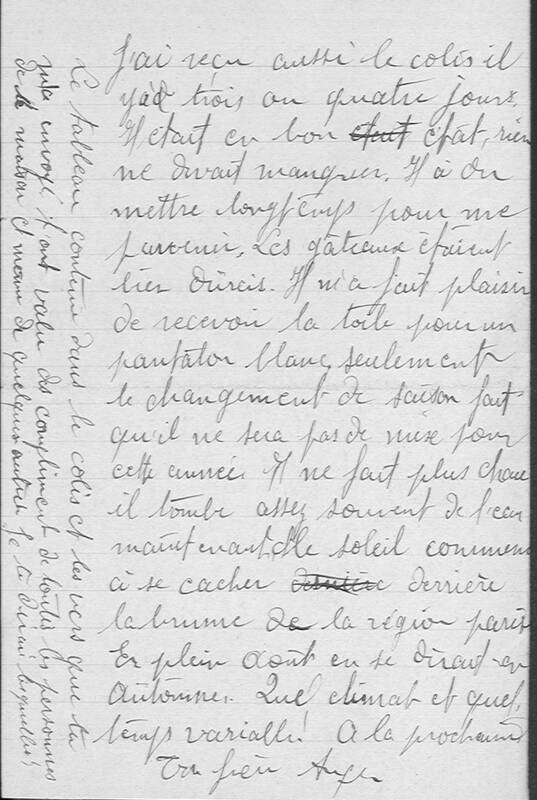 J'ai reçu aussi le colis il
y a trois ou quatre jours.
Il était en bon état, rien
ne devait manquer. Il à du
mettre longtemps pour me
parvenir. Les gâteaux étaient
bien durcis. Il m'a fait plaisir
de recevoir la toile pour un
pantalon blanc, seulement
le changement de saison fait
qu'il ne sera pas de mise pour
cette année. Il ne fait plus chau
il tombe assez souvent de l'eau
maintenant. Le soleil commen
à se cacher derrière
la brume de la région paris
En plein août on se dirait en
automne. Quel climat et quel
temps variable! A la prochaine
Ton frère
Le tableau contenu dans le colis et les vers que tu
m'a envoyé t'ont valu des compliment de toutes les personnes
de la maison et même de quelques autres. Je te dirai lesquelles!